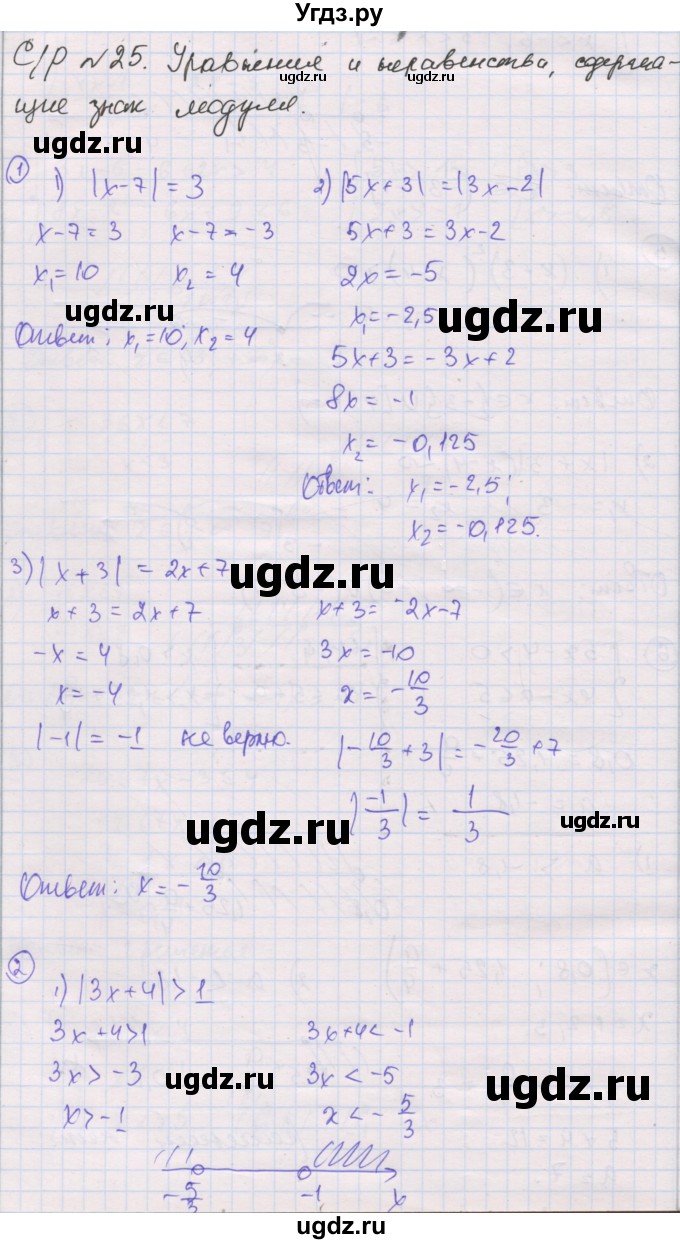 Угдз.ру
С/Р №25. Уравнения и неравенства, содержа-
щие знак модуля.
1
1) |x-7| = 3
x-7=3 x-7=-3
x₁=10 x₂=4
Ответ: x₁=10; x₂=4
2) |5x+3| = |3x-2|
5x+3 = 3x-2
2x = -5
x₁=-2,5
5x+3 = -3x+2
8x = -1
x₂ = -0,125
Ответ: x₁=-2,5;
x₂=-0,125.
3) |x+3| = 2x+7
x+3 = 2x+7
-x = 4
x = -4
|-1| = -1 не верно.
x+3 = -2x-7
3x = -10
x = -10/3
|-10/3+3| = -20/3+7
|-1/3| = 1/3
Ответ: x = -10/3
2
1) |3x+4| > 1
3x+4>1 3x+4<-1
3x > -3 3x < -5
x > -1 x < -5/3
-5/3 -1 x
ugdz.ru
ugdz.ru
ugdz.ru
ugdz.ru
ugdz.ru
ugdz.ru
ugdz.ru
ugdz.ru
ugdz.ru
ugdz.ru
ugdz.ru